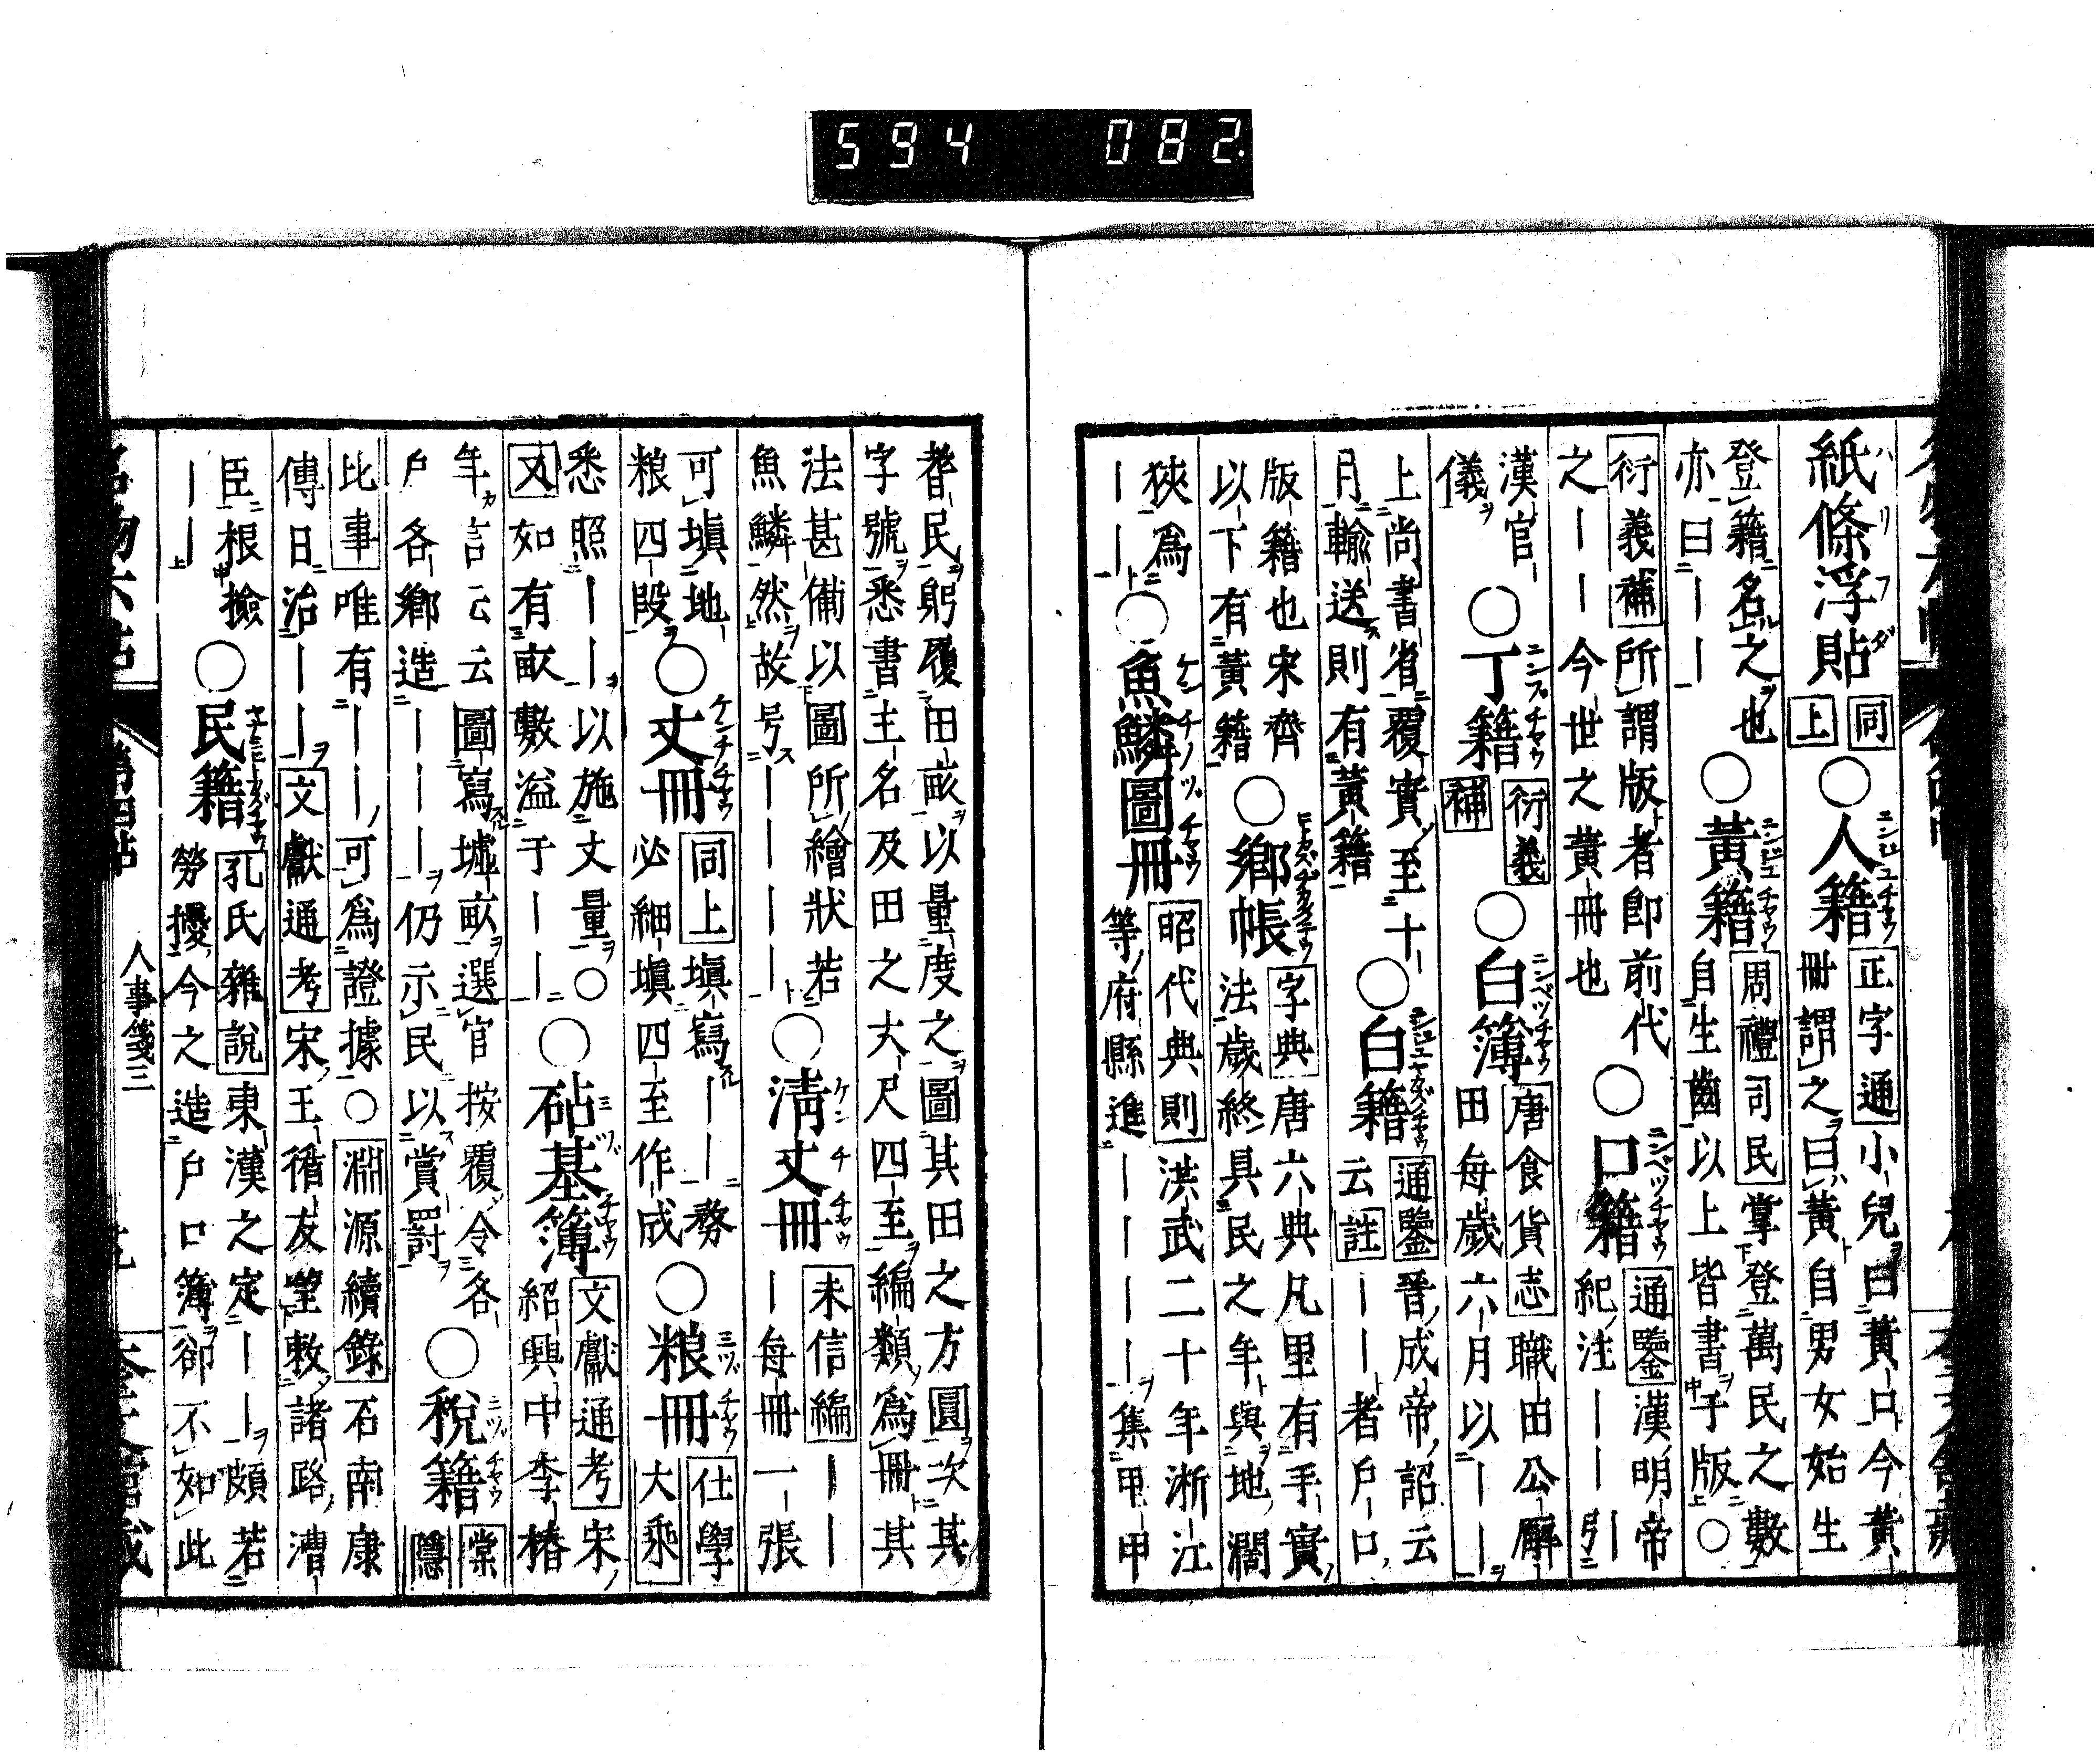 594 082
紙條浮貼 ハリフダ 同上 ○人籍 ニンジユチヤウ 正字通 小兒曰黃口今黃
冊謂之曰黃自男女始生
登籍名之也
亦曰——
○黃籍 ニンジユチヤウ 周禮司民 掌登萬民之數
自生齒以上皆書于版○
衍義補 所謂版者即前代
之——今世之黃冊也
○口籍 ニンベツチヤウ 通鑒 漢明帝
紀注——引
漢官
儀
○丁籍 ニンズチヤウ 衍義補
○白簿 ニンベツチヤウ 唐食貨志 職田公廨
田每歲六月以——
上尚書省覆實至十
月輸送則有黃籍
○白籍 通鑒 晉成帝詔云
云註——者戶口
版籍也宋齊
以下有黃籍
○鄉帳 字典 唐六典凡里有手實
法歲終具民之年與地濶
狹爲
——
○魚鱗圖冊 ケンチノヅチヤウ 昭代典則 洪武二十年浙江
等府縣進————集甲甲
耆民躬履田畝以量度之圖其田之方圓次其
字號悉書主名及田之丈尺四至編類爲冊其
法甚備以圖所繪狀若
魚鱗然故号————
○淸丈冊 ケンチチヤウ 未信編 ——
—每冊一張
可塡地
粮四段
○丈冊 ケンチチヤウ 同上 塡寫——務
必細塡四至作成
○粮冊 ミヅチヤウ 仕學大乘
悉照——以施丈量○
又 如有畝數溢于——
○砧基簿 ミヅチヤウ 文獻通考 宋
紹興中李椿
年言云云圖寫墟畝選官按覆令各
戶各鄉造———仍示民以賞罰
○稅籍 ミヅチヤウ 棠隱
比事 唯有——可爲證據○ 淵源續錄 石南康
傳曰治—— 文獻通考 宋王循友望敕諸路漕
臣根撿
——
○民籍 孔氏雜說 東漢之定——頗若
勞擾今之造戶口簿卻不如此
人事箋三